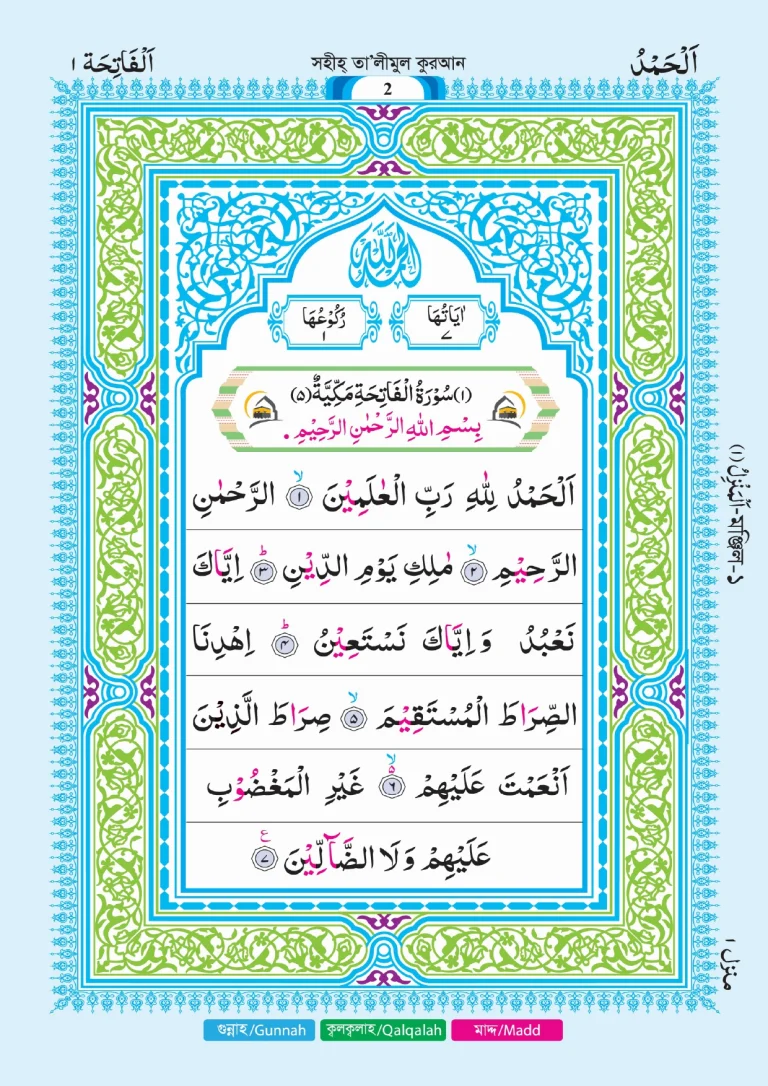 اَلْحَمْدُ
সহীহ্ তা'লীমুল কুরআন
اَلْفَاتِحَة ١
2
الحمد لله
اٰيَاتُهَا
٧
رُكُوْعُهَا
١
(١) سُوْرَةُ الْفَاتِحَةِ مَكِّيَّةٌ (٥)
بِسْمِ اللهِ الرَّحْمٰنِ الرَّحِيْمِ .
اَلْحَمْدُ لِلّٰهِ رَبِّ الْعٰلَمِيْنَ ۙ ١ الرَّحْمٰنِ
الرَّحِيْمِ ۙ ٢ مٰلِكِ يَوْمِ الدِّيْنِ ؕ ٣ اِيَّاكَ
نَعْبُدُ وَاِيَّاكَ نَسْتَعِيْنُ ؕ ٤ اِهْدِنَا
الصِّرَاطَ الْمُسْتَقِيْمَ ۙ ٥ صِرَاطَ الَّذِيْنَ
اَنْعَمْتَ عَلَيْهِمْ ۙ ٦ غَيْرِ الْمَغْضُوْبِ
عَلَيْهِمْ وَلَا الضَّآلِّيْنَ ع ٧
اَلْمَنْزِلُ (١)-মাঞ্জিল-১
منزل ١
গুন্নাহ/Gunnah
ক্বলক্বলাহ/Qalqalah
মাদ্দ/Madd